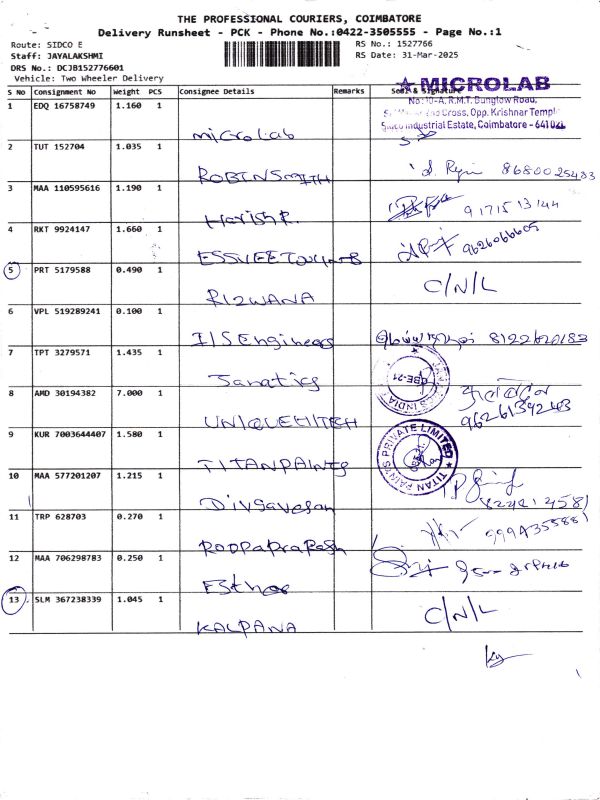 THE PROFESSIONAL COURIERS, COIMBATORE
Delivery Runsheet - PCK - Phone No.:0422-3505555 - Page No.:1
Route: SIDCO E
RS No.: 1527766
Staff: JAYALAKSHMI
RS Date: 31-Mar-2025
DRS No.: DCJB152776601
Vehicle: Two Wheeler Delivery
S No Consignment No Weight PCS Consignee Details Remarks Seal & Signature
MICROLAB
No:10-A, R.M.T. Bunglow Road,
Cross, Opp. Krishnar Temple
Sidco Industrial Estate, Coimbatore - 641 021.
1 EDQ 16758749 1.160 1 microlab
2 TUT 152704 1.035 1 ROBINSMITH 8680025483
3 MAA 110595616 1.190 1 Harish R. 9171513144
4 RKT 9924147 1.660 1 9626066605
5 PRT 5179588 0.490 1 RIZWANA C/N/L
6 VPL 519289241 0.100 1 IIS Engineers
7 TPT 3279571 1.435 1 Janatics
CBE-21
8 AMD 30194382 7.000 1 UNIQUEHITECH
9 KUR 7003644407 1.580 1 TITANPAINTS
TITAN PAINTS PRIVATE LIMITED
10 MAA 577201207 1.215 1
11 TRP 628703 0.270 1 ROOPAPRAKASH
12 MAA 706298783 0.250 1 Esther
13 SLM 367238339 1.045 1 KALPANA C/N/L